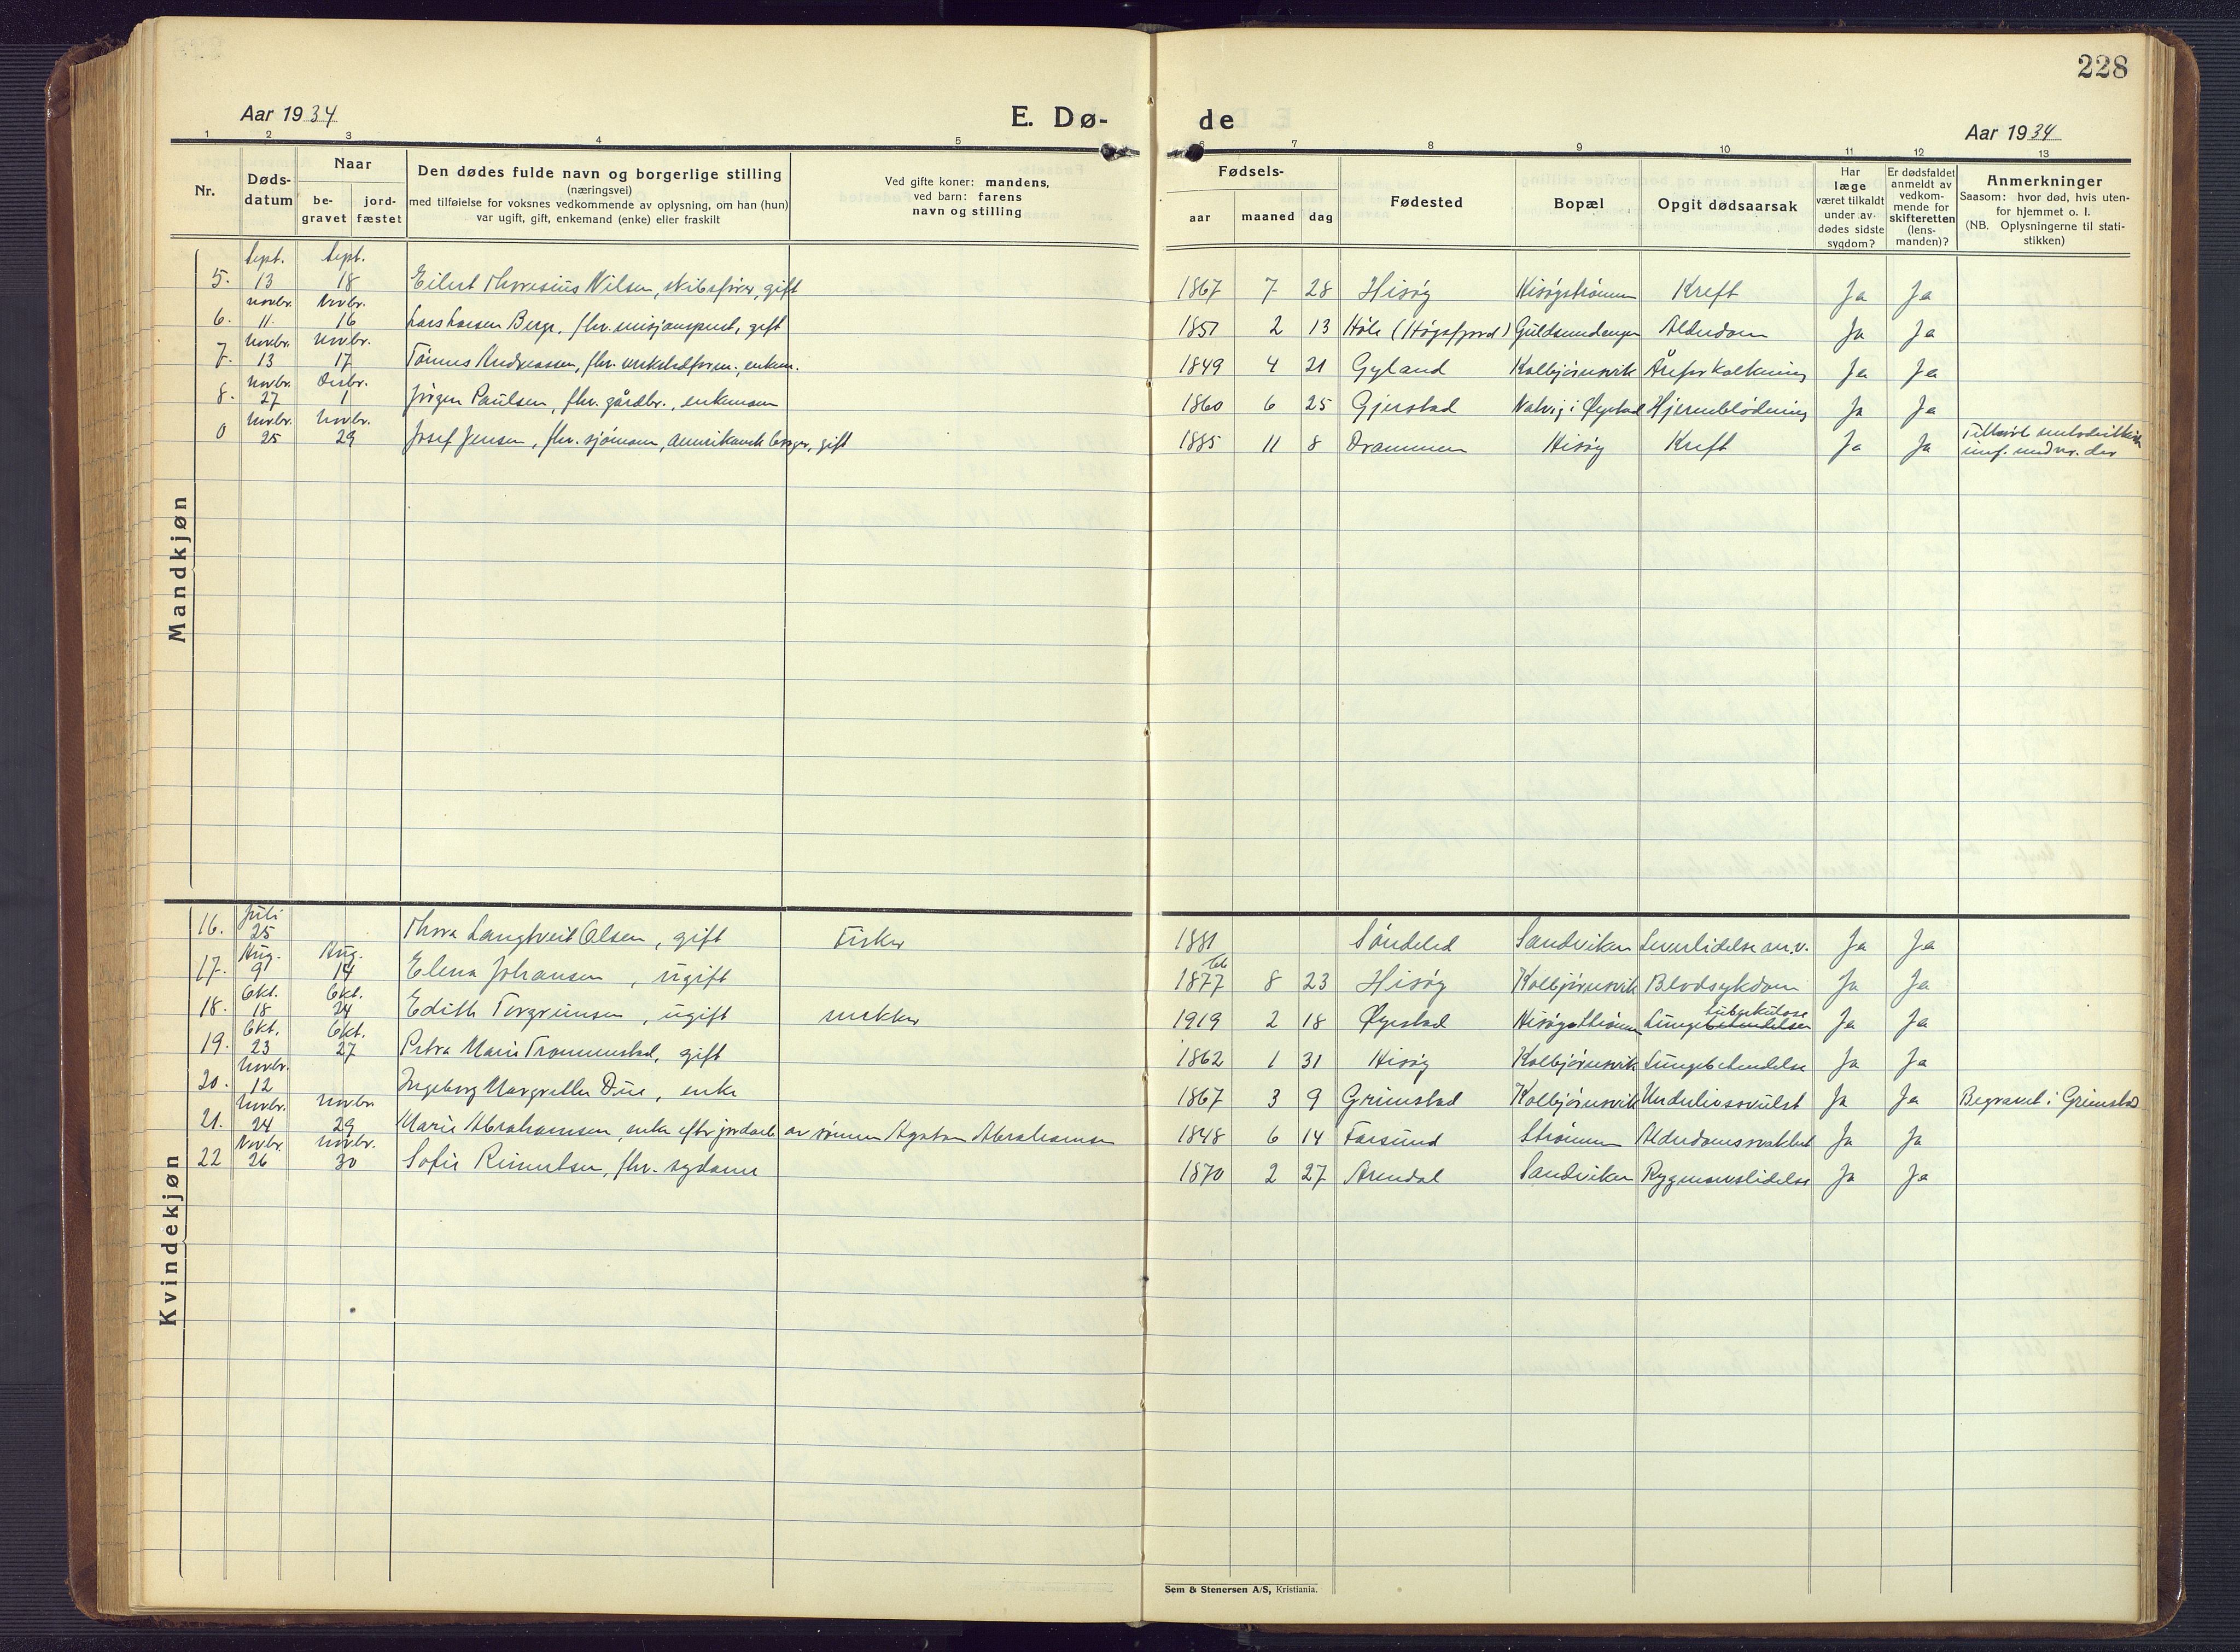 228
Aar 1934
E. Dø-
de
Aar 1934
1 2 3 4 5 6 7 8 9 10 11 12 13
Nr.
Døds-
datum
Naar
be-
gravet
jord-
fæstet
Den dødes fulde navn og borgerlige stilling
(næringsvei)
med tilføielse for voksnes vedkommende av oplysning, om han (hun)
var ugift, gift, enkemand (enke) eller fraskilt
Ved gifte koner: mandens,
ved barn: farens
navn og stilling
Fødsels-
aar
maaned
dag
Fødested
Bopæl
Opgit dødsaarsak
Har
læge
været tilkaldt
under av-
dødes sidste
sygdom?
Er dødsfaldet
anmeldt av
vedkom-
mende for
skifteretten
(lens-
manden)?
Anmerkninger
Saasom: hvor død, hvis uten-
for hjemmet o. l.
(NB. Oplysningerne til stati-
stikken)
Mandkjøn
Sept. Sept.
5. 13 18 Eilert Thoresius Nilsen, skibsfører, gift 1867 7 28 Hisøy Hisøystrømm Kreft Ja Ja
Novbr. Novbr.
6. 11. 16 Lars Larsen Berge, fhv. misjonsprest, gift 1851 2 13 Høle (Høgsfjord) Aldedom Ja Ja
Novbr. Novbr.
7. 13 17 Tønnes Andreassen, fhv. enkem. 1849 4 21 Gyland Kolbjørnsvik Åreforkalkning Ja Ja
Novbr. Desbr.
8. 27 1 Jørgen Paulsen, fhv. gårdbr., enkemann 1860 6 25 Gjerstad i Øyestad Hjerneblødning Ja Ja
Novbr. Novbr.
0 25 29 Josef Jensen, fhv. sjømann, amerikansk borger, gift 1885 11 8 Drammen Hisøy Kreft Ja Ja
Kvindekjøn
Juli
16. 25 Thora Langtveit Olsen, gift Fisker 1881 Søndeled Sandviken Leverlidelse m.v. Ja Ja
Aug. Aug.
17. 9 14 Elena Johansen, ugift 1877 8 23 Hisøy Kolbjørnsvik Blodsykdom Ja Ja
Okt. Okt.
18. 18 24 Edith Torgrimsen, ugift snekker 1919 2 18 Øyestad Hisøystrømm Lungetuberkulose Ja Ja
Okt. Okt.
19. 23 27 Petra Marie Trommestad, gift 1862 1 31 Hisøy Kolbjørnsvik Lungebetendelse Ja Ja
Novbr.
20. 12 Ingeborg Margrethe Due, enke 1867 3 9 Grimstad Kolbjørnsvik Underlivssvulst Ja Ja Begravet i Grimstad
Novbr. Novbr.
21. 24 29 Marie Abrahamsen, enke efter jordarb. av sønnen Agaton Abrahamsen 1848 6 14 Farsund Strømmen Alderdomssvakhet Ja Ja
Novbr. Novbr.
22 26 30 Sofie Reiertsen, fhv. sydame 1870 2 27 Arendal Sandviken Rygmarvslidelse Ja Ja
Sem & Stenersen A/S, Kristiania.